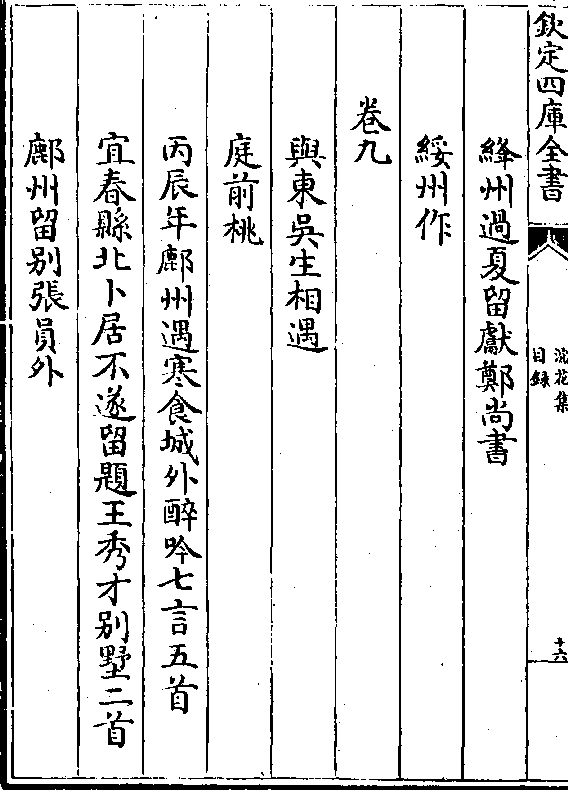 欽定四庫全書
浣花集
目録
十六
絳州過夏留獻鄭尚書
綏州作
卷九
與東吳生相遇
庭前桃
丙辰年鄜州遇寒食城外醉吟七言五首
宜春縣北卜居不遂留題王秀才别墅二首
鄜州留别張員外